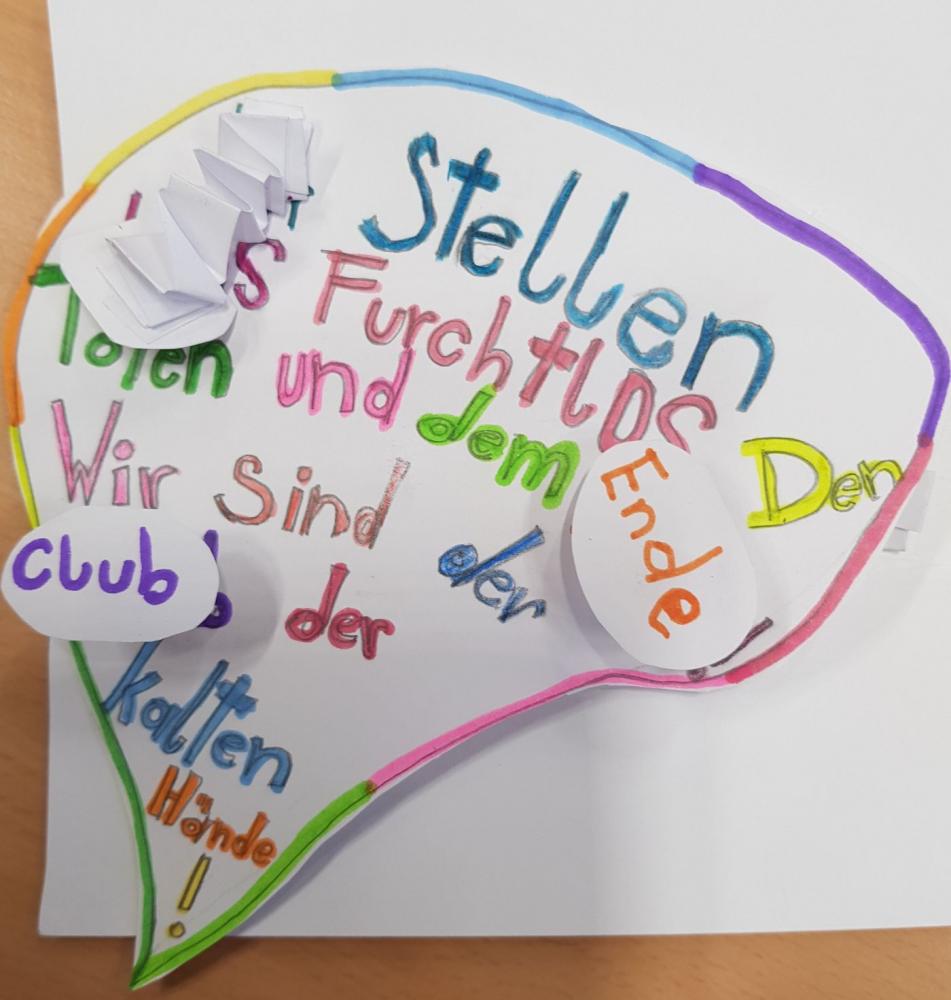 Stellen
S Furchtlos Den
Toten und dem Ende
Wir Sind der
Club der
kalten
Hände
!